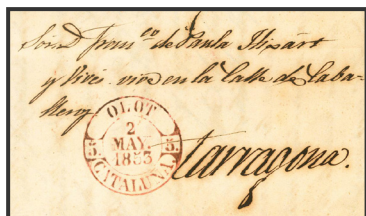 Franco de Paula
y Vives vive en la Calle de Caba-
lleros
OLOT
2
MAY.
1853
5. 5.
CATALUÑA
Tarragona.